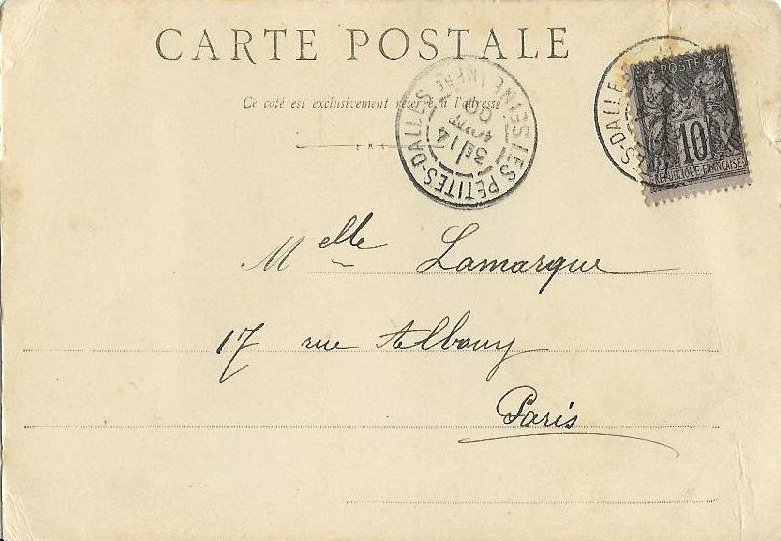 CARTE POSTALE
Ce coté est exclusivement réservé à l'adresse
LES PETITES-DALLES SEINE INFRE
3E 14 AOUT 00
POSTE
10
REPUBLIQUE FRANÇAISE
Melle Lamarque
17 rue Albouy
Paris